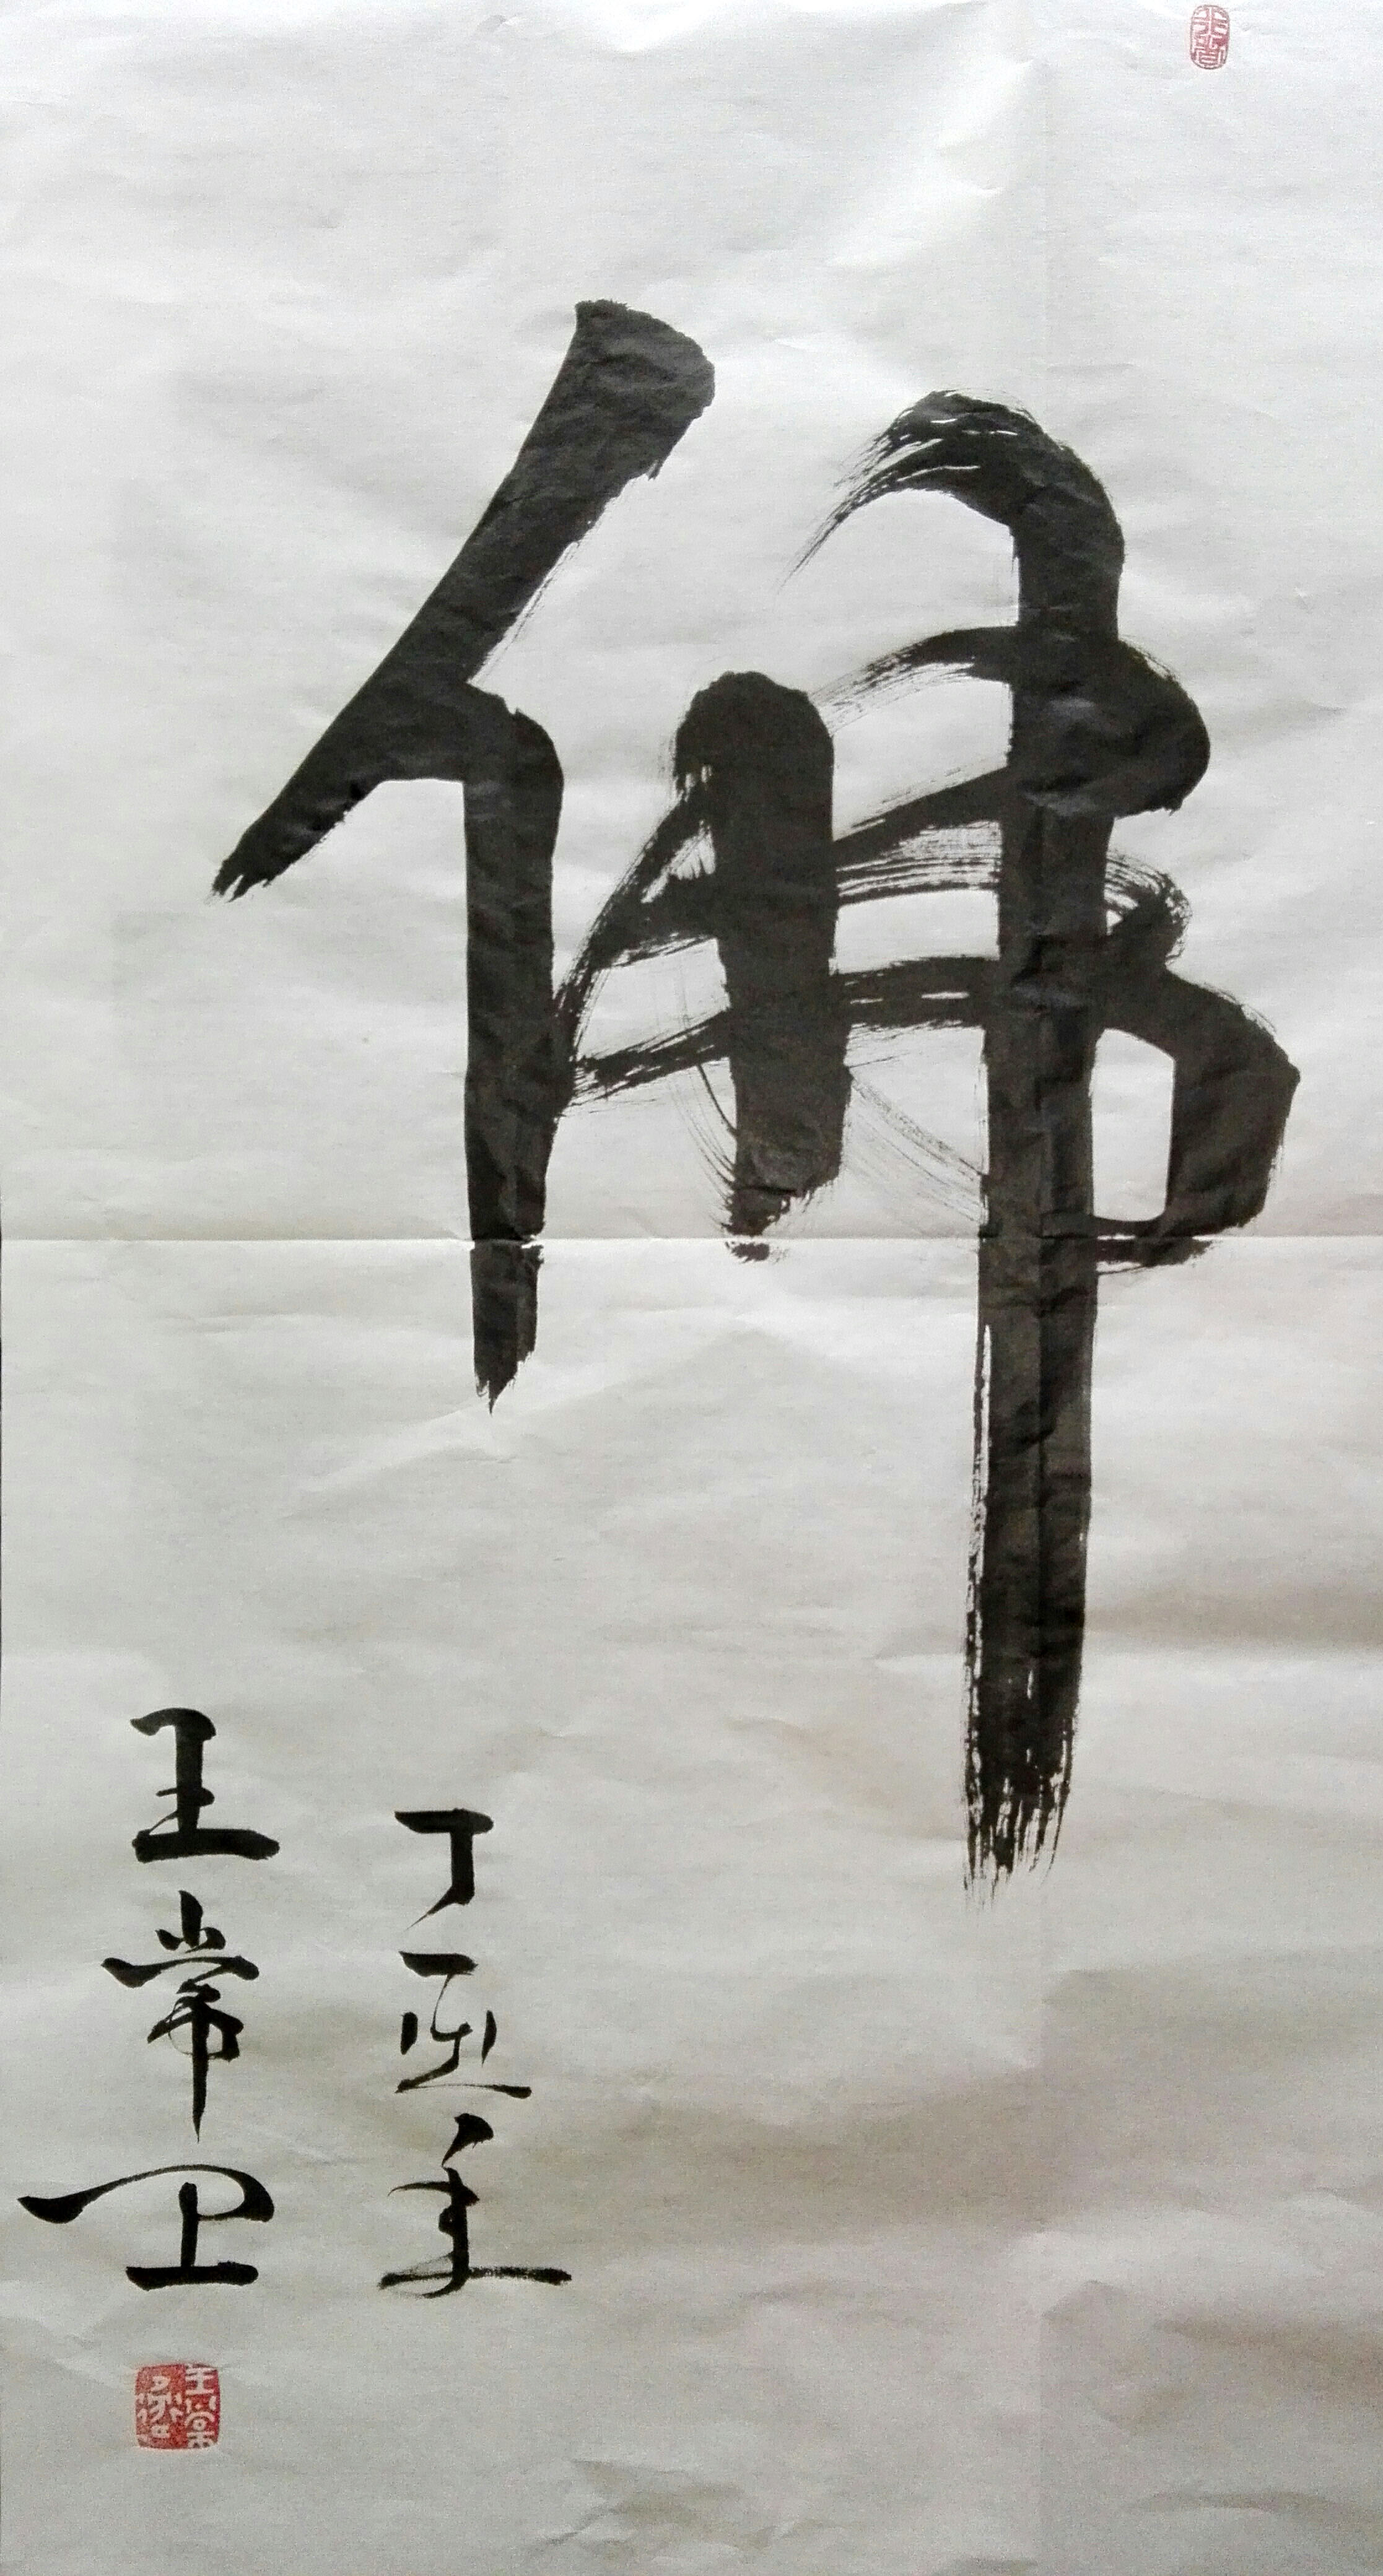 佛
丁酉年
王常卫